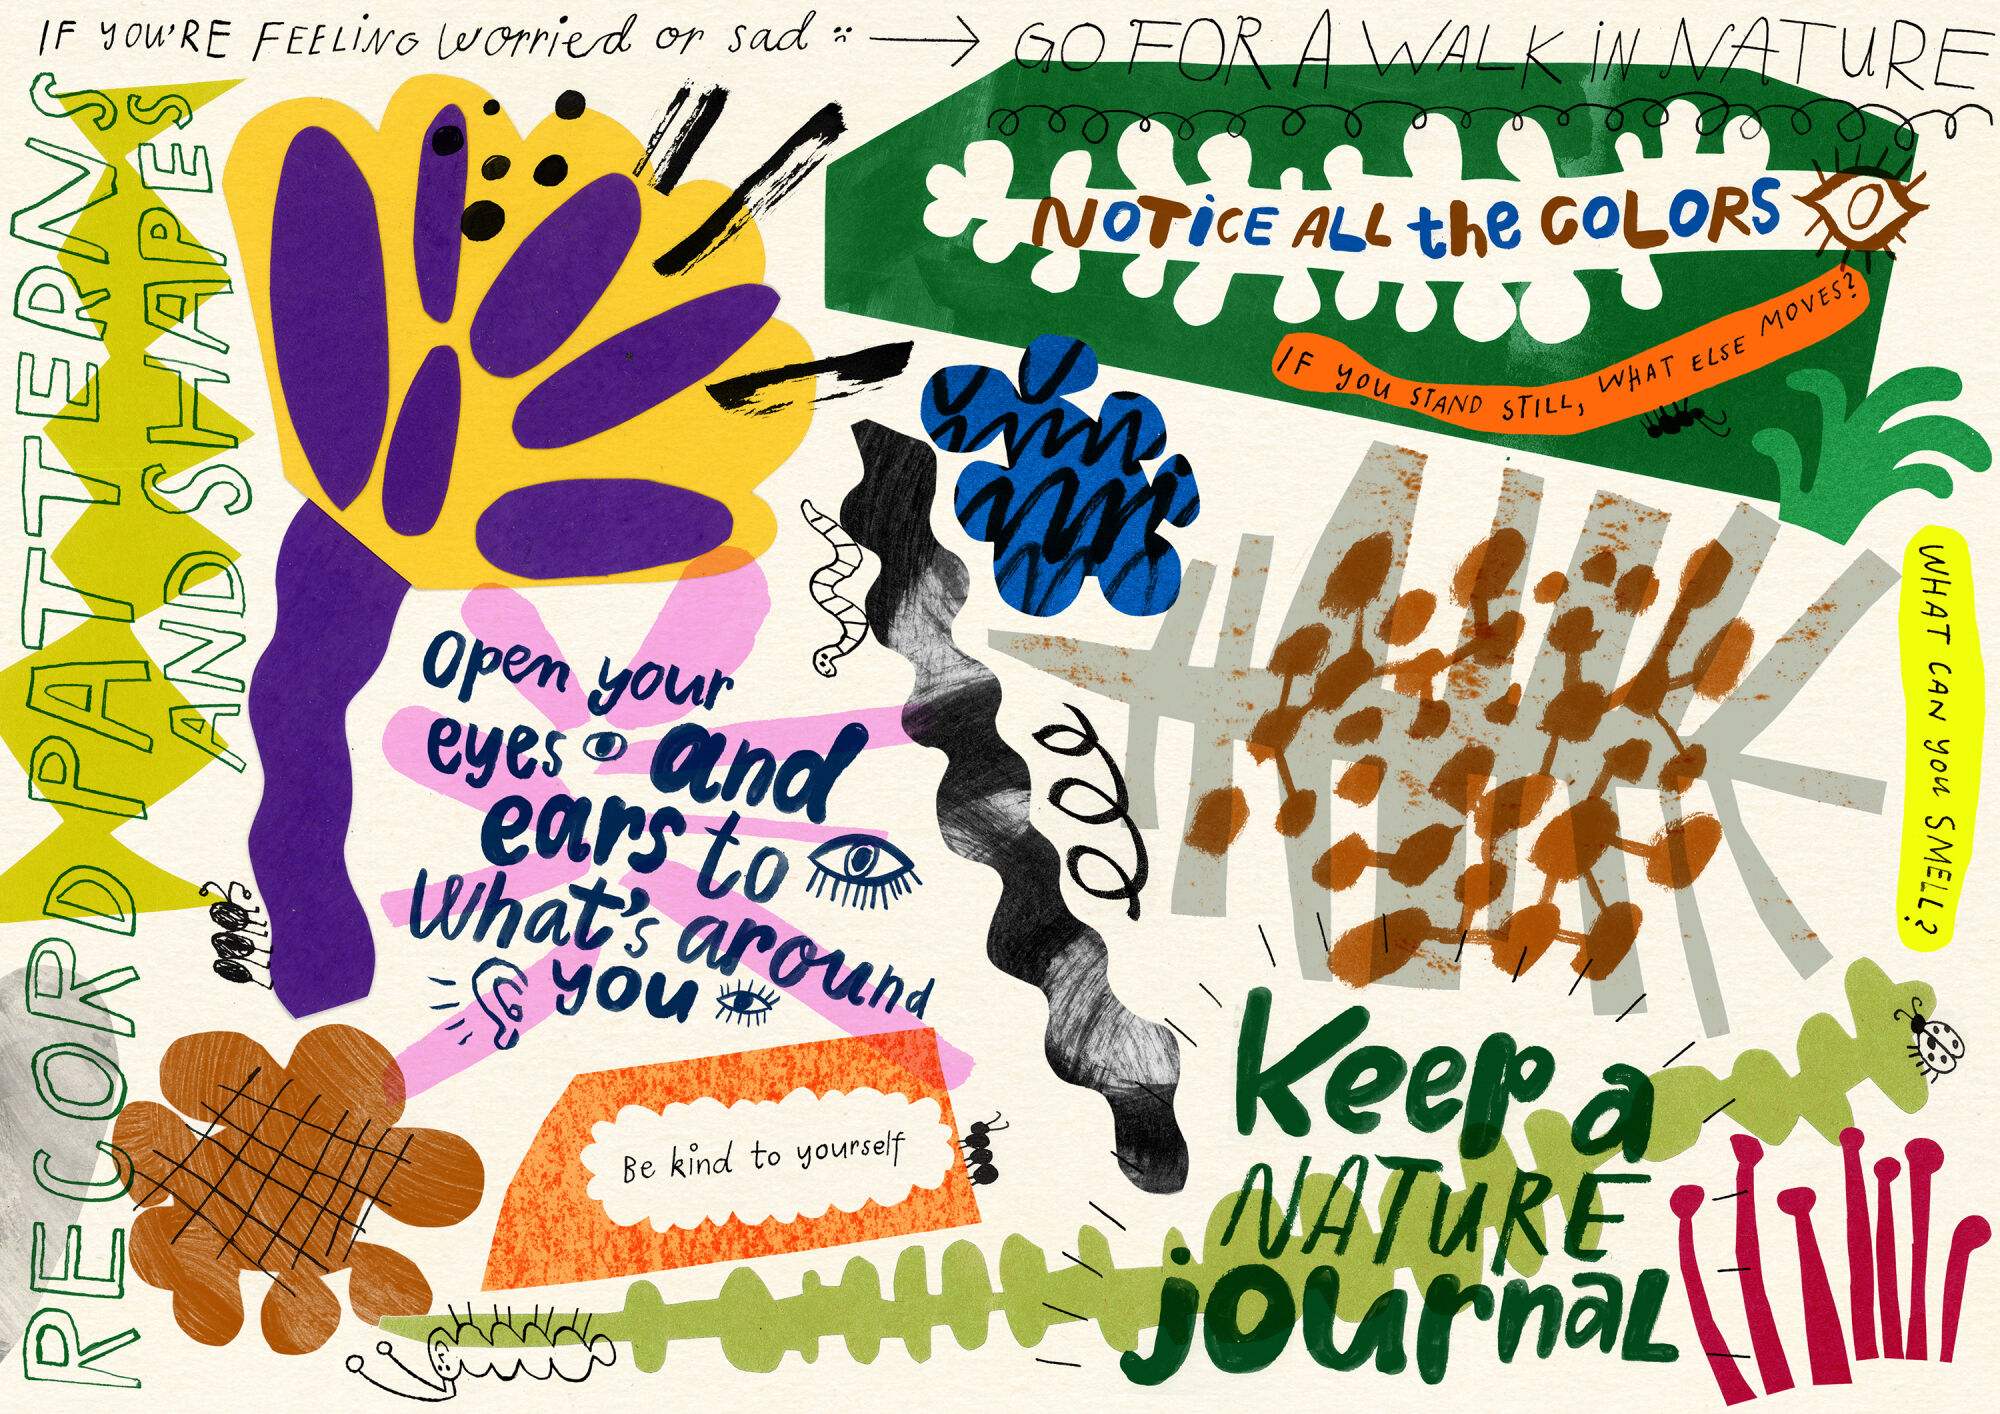 IF YOU'RE FEELING Worried or sad :( → GO FOR A WALK iN NATURE
NOTiCE ALL the COLORS
IF YOU STAND STILL, WHAT ELSE MOVES?
RECORD PATTERNS
AND SHAPES
Open your
eyes and
ears to
What's around
you
WHAT CAN YOU SMELL?
Be kind to yourself
Keep a
NATURE
journal